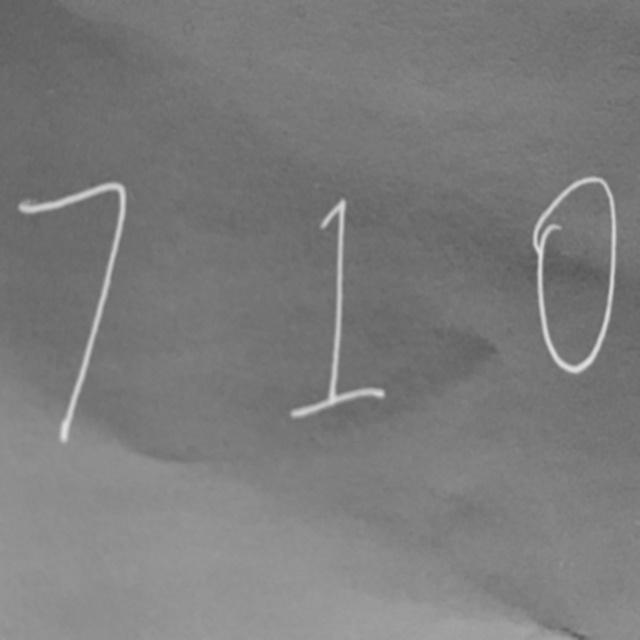 7 1 0